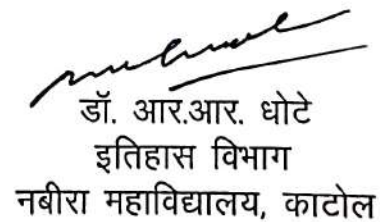 डॉ. आर.आर. धोटे
इतिहास विभाग
नबीरा महाविद्यालय, काटोल